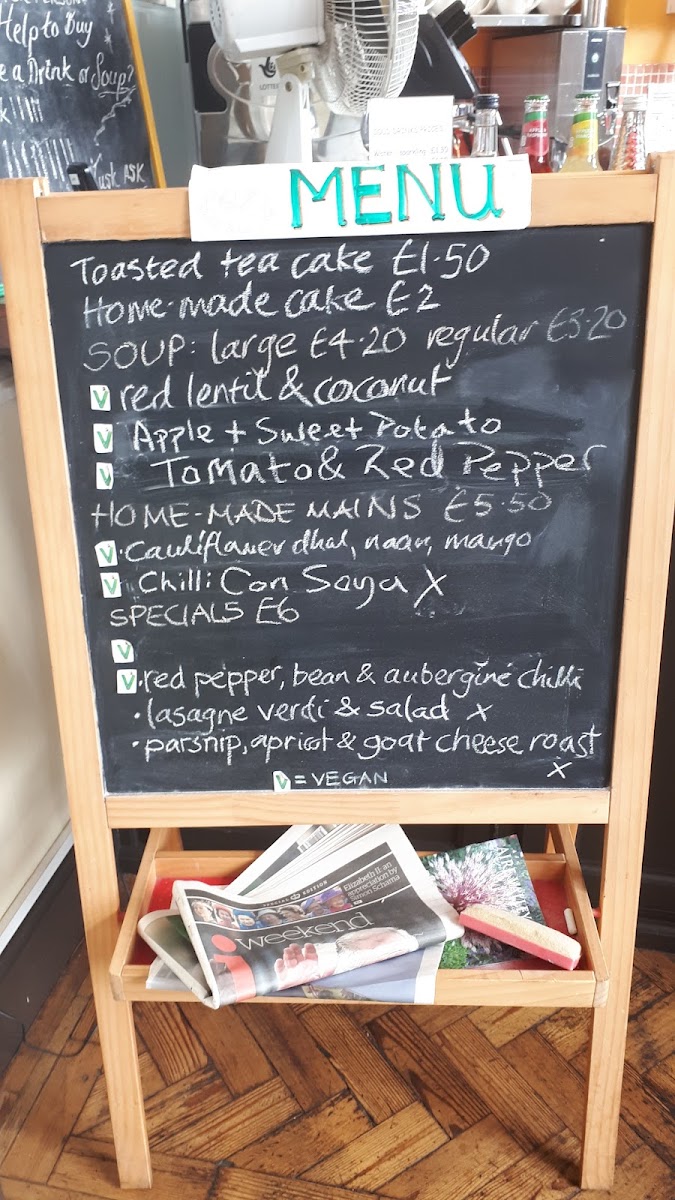 Help to Buy
e a Drink or Soup?
Just ASK
LOTTERY
MENU
Toasted tea cake £1.50
Home-made cake £2
SOUP: large £4.20 regular £3.20
V red lentil & coconut
V Apple + Sweet Potato
V Tomato & Red Pepper
HOME-MADE MAINS £5.50
V · Cauliflower dhal, naan, mango
V Chilli Con Soya X
SPECIALS £6
V
V · red pepper, bean & aubergine chilli
· lasagne verdi & salad x
· parsnip, apricot & goat cheese roast
x
V = VEGAN
SPECIAL EDITION
Elizabeth II: an
appreciation by
Simon Schama
i weekend